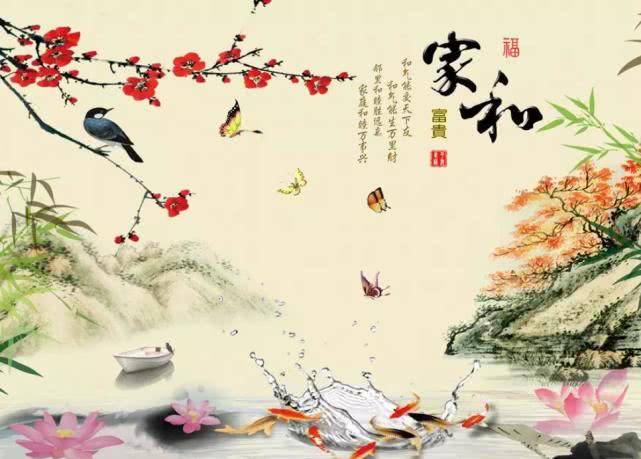 福
家和
富貴
和气能交天下友
和气能生万里財
邻里和睦胜远亲
家庭和睦万事兴